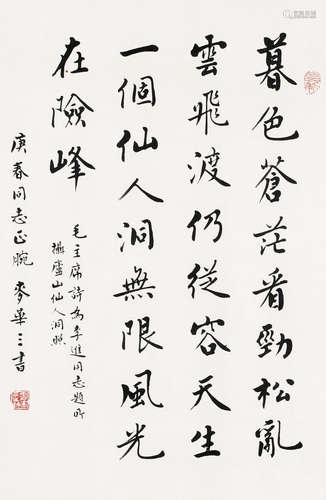 暮色蒼茫看勁松亂
雲飛渡仍從容天生
一個仙人洞無限風光
在險峰
毛主席詩為李進同志題所
攝廬山仙人洞照
庚春同志正腕 麥華三書